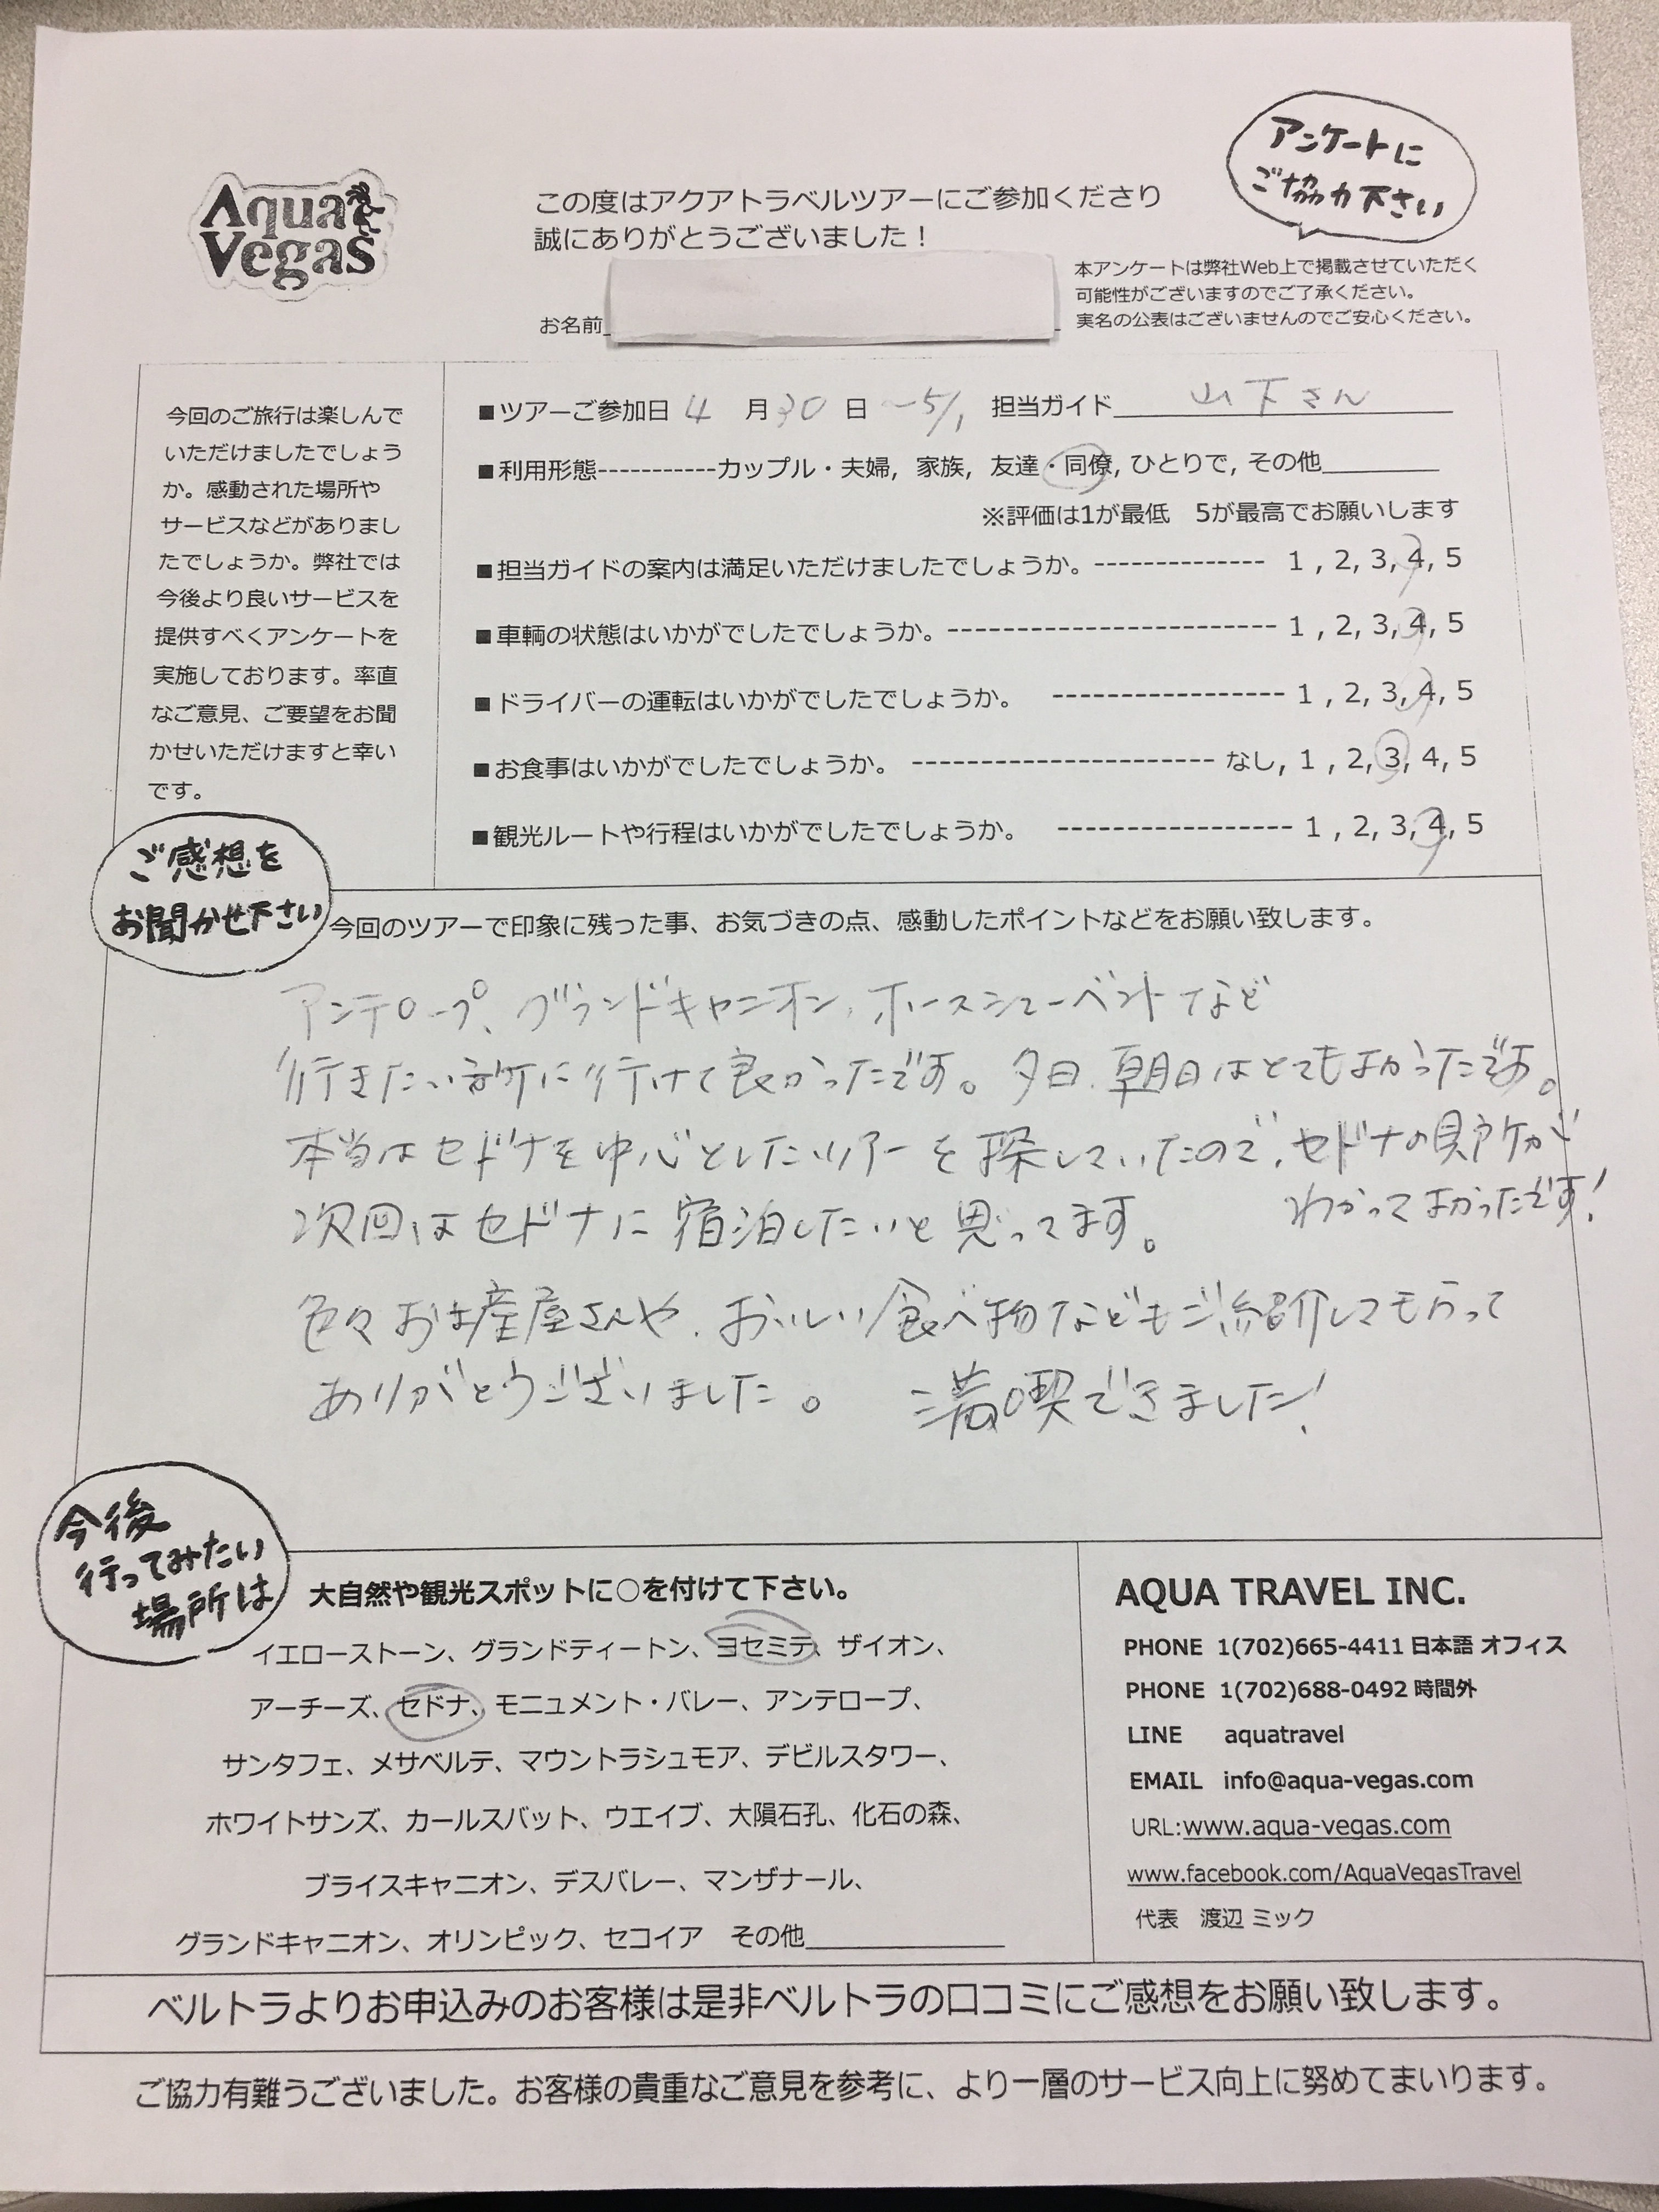 Aqua
Vegas
この度はアクアトラベルツアーにご参加くださり
誠にありがとうございました！
アンケートに
ご協力下さい
本アンケートは弊社Web上で掲載させていただく
可能性がございますのでご了承ください。
実名の公表はございませんのでご安心ください。
お名前
今回のご旅行は楽しんで
いただけましたでしょう
か。感動された場所や
サービスなどがありまし
たでしょうか。弊社では
今後より良いサービスを
提供すべくアンケートを
実施しております。率直
なご意見、ご要望をお聞
かせいただけますと幸い
です。
■ツアーご参加日 4 月 30 日 〜5/1 担当ガイド 山下さん
■利用形態-----------カップル・夫婦, 家族, 友達・同僚, ひとりで, その他
※評価は1が最低 5が最高でお願いします
■担当ガイドの案内は満足いただけましたでしょうか。-------------- 1 , 2, 3, 4, 5
■車輌の状態はいかがでしたでしょうか。--------------------------- 1 , 2, 3, 4, 5
■ドライバーの運転はいかがでしたでしょうか。 ------------------- 1 , 2, 3, 4, 5
■お食事はいかがでしたでしょうか。 ------------------------- なし, 1 , 2, 3, 4, 5
■観光ルートや行程はいかがでしたでしょうか。 ------------------- 1 , 2, 3, 4, 5
ご感想を
お聞かせ下さい
今回のツアーで印象に残った事、お気づきの点、感動したポイントなどをお願い致します。
アンテロープ、グランドキャニオン、ホースシューベントなど
行きたい所に行けて良かったです。夕日、朝日はとてもよかったです。
本当はセドナを中心としたツアーを探していたので、セドナの見所が
わかってよかったです！
次回はセドナに宿泊したいと思ってます。
色々お土産屋さんや、おいしい食べ物などもご紹介してもらって
ありがとうございました。 満喫できました！
今後
行ってみたい
場所は
大自然や観光スポットに○を付けて下さい。
イエローストーン、グランドティートン、ヨセミテ、ザイオン、
アーチーズ、セドナ、モニュメント・バレー、アンテロープ、
サンタフェ、メサベルテ、マウントラシュモア、デビルスタワー、
ホワイトサンズ、カールスバット、ウエイブ、大隕石孔、化石の森、
ブライスキャニオン、デスバレー、マンザナール、
グランドキャニオン、オリンピック、セコイア その他
AQUA TRAVEL INC.
PHONE 1(702)665-4411 日本語 オフィス
PHONE 1(702)688-0492 時間外
LINE aquatravel
EMAIL info@aqua-vegas.com
URL:www.aqua-vegas.com
www.facebook.com/AquaVegasTravel
代表 渡辺 ミック
ベルトラよりお申込みのお客様は是非ベルトラの口コミにご感想をお願い致します。
ご協力有難うございました。お客様の貴重なご意見を参考に、より一層のサービス向上に努めてまいります。